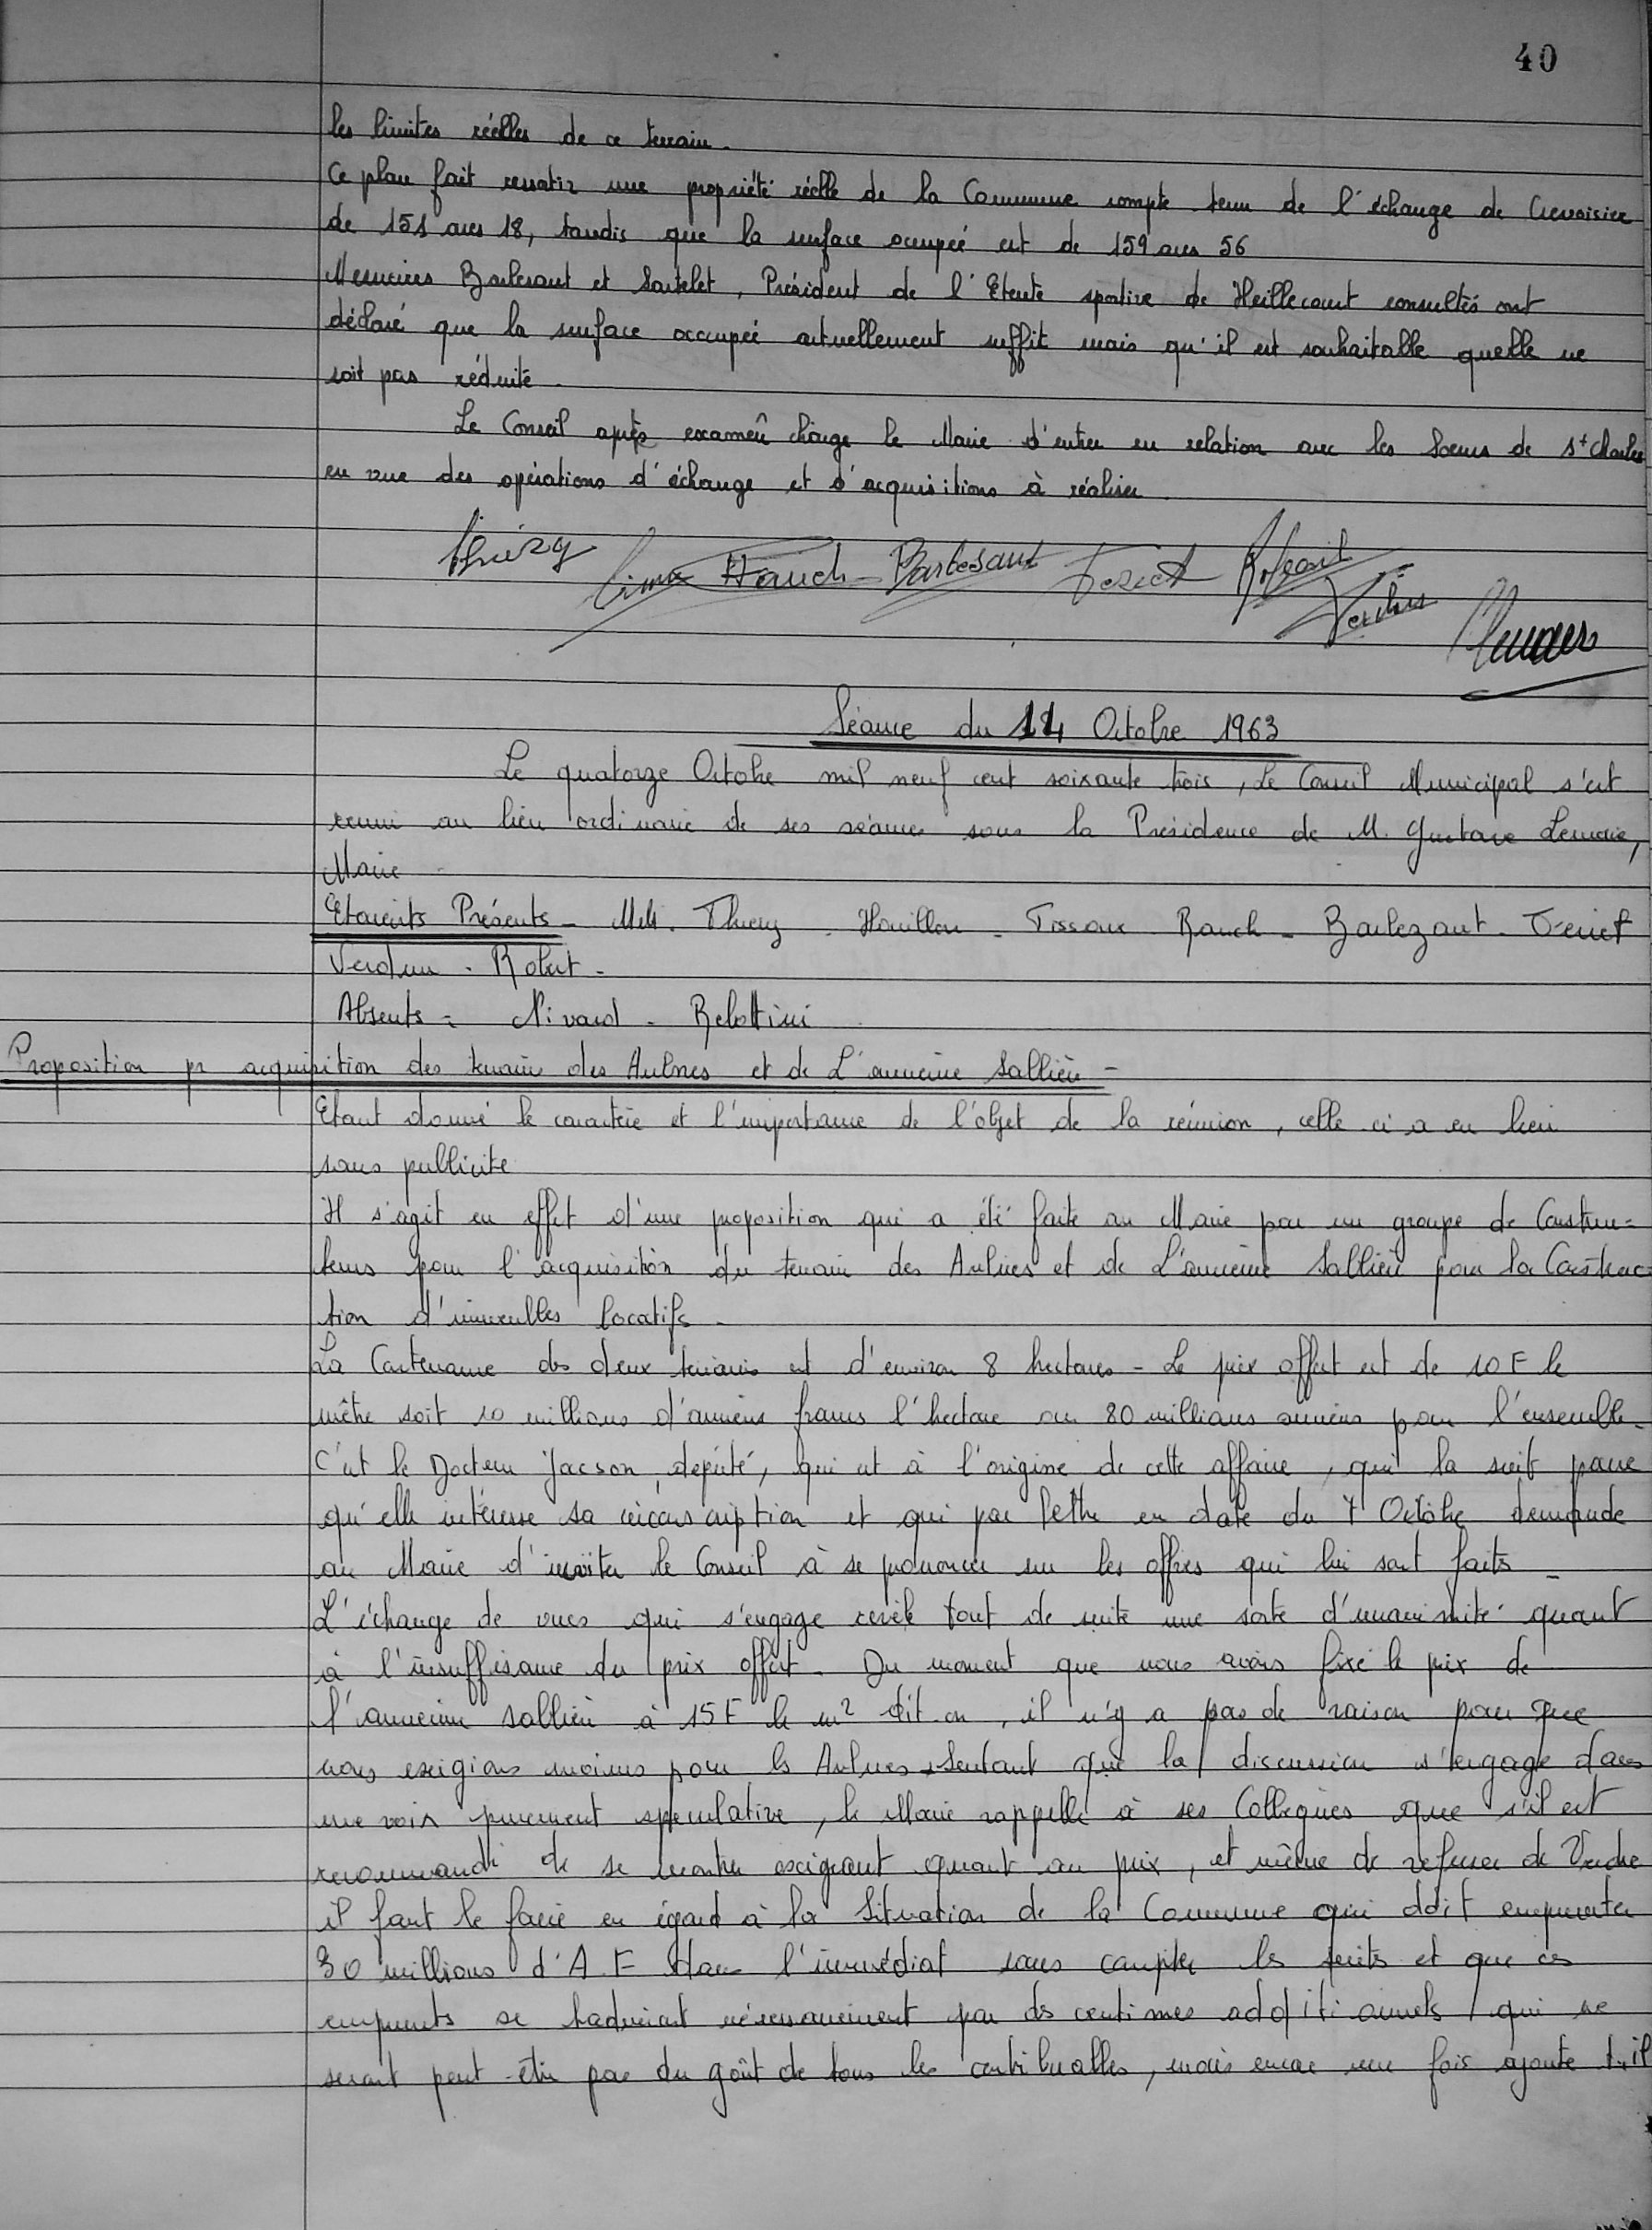 40
les limites réelles de ce terrain.
Ce plan fait ressortir une propriété réelle de la Commune compte tenu de l'échange de Crevoisier
de 151 ares 18, tandis que la surface occupée est de 159 ares 56
Messieurs Barbesant et Sartelet, Président de l'Etente sportive de Heillecourt consultés ont
déclaré que la surface occupée actuellement suffit mais qu'il est souhaitable quelle ne
soit pas réduite.
Le Conseil après examen charge le Maire d'entrer en relation avec les Soeurs de St Charles
en vue des opérations d'échange et d'acquisitions à réaliser.
Thiéry Hauch - Barbesant Feriet
Séance du 14 Octobre 1963
Le quatorze Octobre mil neuf cent soixante trois, Le Conseil Municipal s'est
reuni au lieu ordinaire de ses séances sous la Présidence de M. Gustave Lemaire,
Maire
Etaients Présents - MM. Thiery - Houillon - Tissoux - Rauch - Barbezant - Feriet
Verdun - Robert -
Absents = Nivard - Belottini
Proposition pr acquisition des terrains des Aulnes et de L'ancienne Sablière -
Etant donné le caractère et l'importance de l'objet de la réunion, celle ci a eu lieu
sans publicité
Il s'agit en effet d'une proposition qui a été faite au Maire par un groupe de Construc=
teurs pour l'acquisition du terrain des Aulnes et de L'ancienne Sablière pour la Construc=
tion d'immeubles locatifs -
La Contenance des deux terrains est d'environ 8 hectares - Le prix offert est de 10 F le
mètre soit 10 millions d'anciens francs l'hectare ou 80 millions anciens pour l'ensemble -
C'est le Docteur Jacson, député, qui est à l'origine de cette affaire, qui la suit parce
qu'elle intéresse sa circonscription et qui par lettre en date du 7 Octobre demande
au Maire d'inviter le Conseil à se prononcer sur les offres qui lui sont faits -
L'échange de vues qui s'engage révèle tout de suite une sorte d'unanimité quant
à l'insuffisance du prix offert. Du moment que nous avons fixé le prix de
l'ancienne sablière à 15 F le m2 dit-on, il n'y a pas de raison pour que
nous exigions moins pour les Aulnes. Sentant que la discussion s'engage dans
une voix purement spéculative, le Maire rappelle à ses Collègues que s'il est
recommandé de se montrer exigeant quant au prix, et même de refuser de Vendre
il faut le faire en égard à la Situation de la Commune qui doit emprunter
30 millions d'A.F dans l'immédiat sans compter les suites et que ces
emprunts se traduiront nécessairement par des centimes additionnels qui ne
seront peut-être pas du goût de tous les contribuables, mais encore une fois ajoute t-il